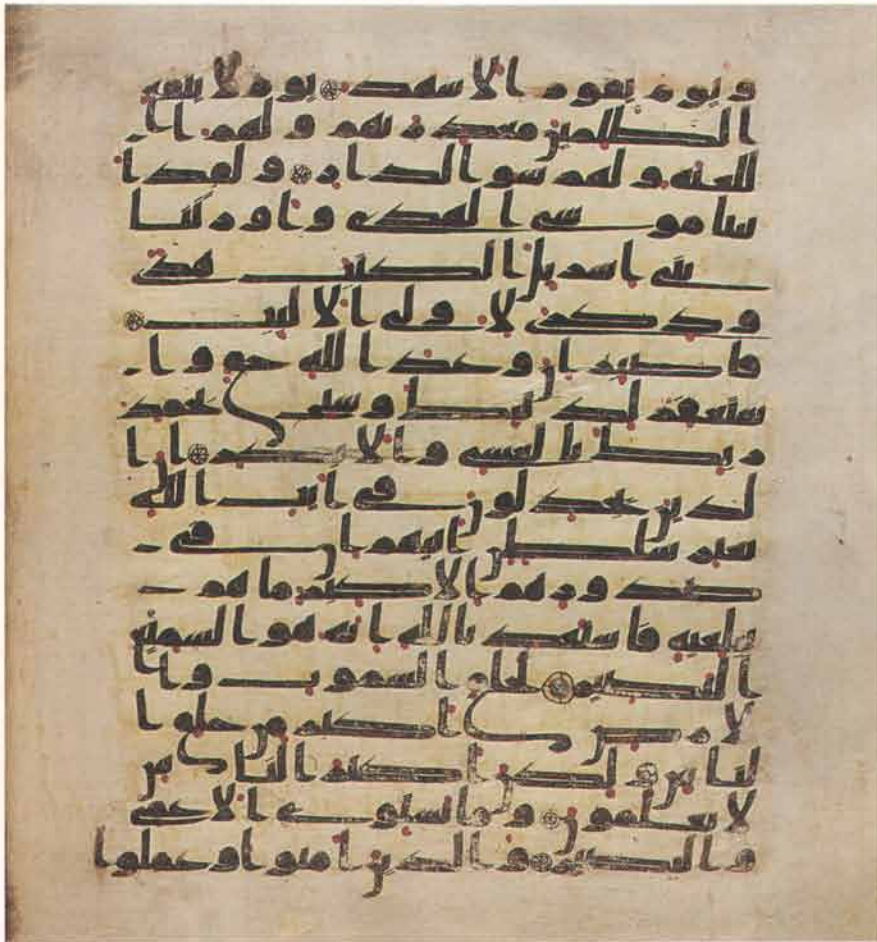 ويوم يقوم الاشهد يوم لا ينفع
الظلمين معذرتهم ولهم ا
للعنه ولهم سو الدار ولقد ا
تينا موسى الهدى واورثنا
بنى اسريل الكتب هدى
وذكرى لاولى الالبب
فاصبر ان وعد الله حق وا
ستغفر لذنبك وسبح بحمد
ربك بالعشى والابكر ان ا
لذين يجدلون فى ايت الله
بغير سلطن اتيهم ان فى
صدورهم الا كبر ما هم
ببلغيه فاستعذ بالله انه هو السميع
البصير لخلق السموت وا
لارض اكبر من خلق ا
لناس ولكن اكثر الناس
لا يعلمون وما يستوى الاعمى
والبصير والذين امنوا وعملوا